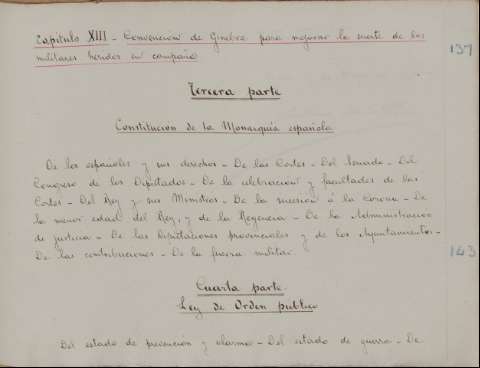 Capítulo XIII - Convencion de Ginebra para mejorar la suerte de los
militares heridos en campaña
137
Tercera parte
Constitución de la Monarquía española
De los españoles y sus derechos - De las Cortes - Del Senado - Del
Congreso de los Diputados - De la celebracion y facultades de las
Cortes - Del Rey y sus Ministros - De la sucesion á la Corona - De
la menor edad del Rey, y de la Regencia - De la Administracion
de justicia - De las Diputaciones provinciales y de los Ayuntamientos -
De las contribuciones - De la fuerza militar
143
Cuarta parte
Ley de Orden público
Del estado de prevención y alarma - Del estado de guerra - De